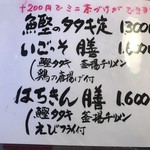 +200円でミニ茶づけができます
鰹のタタキ定 1300
いごっそ膳 1.600
(鰹タタキ 釜揚チリメン
鶏の唐揚げ付
はちきん膳 1.600
(鰹タタキ 釜揚チリメン
えびフライ付